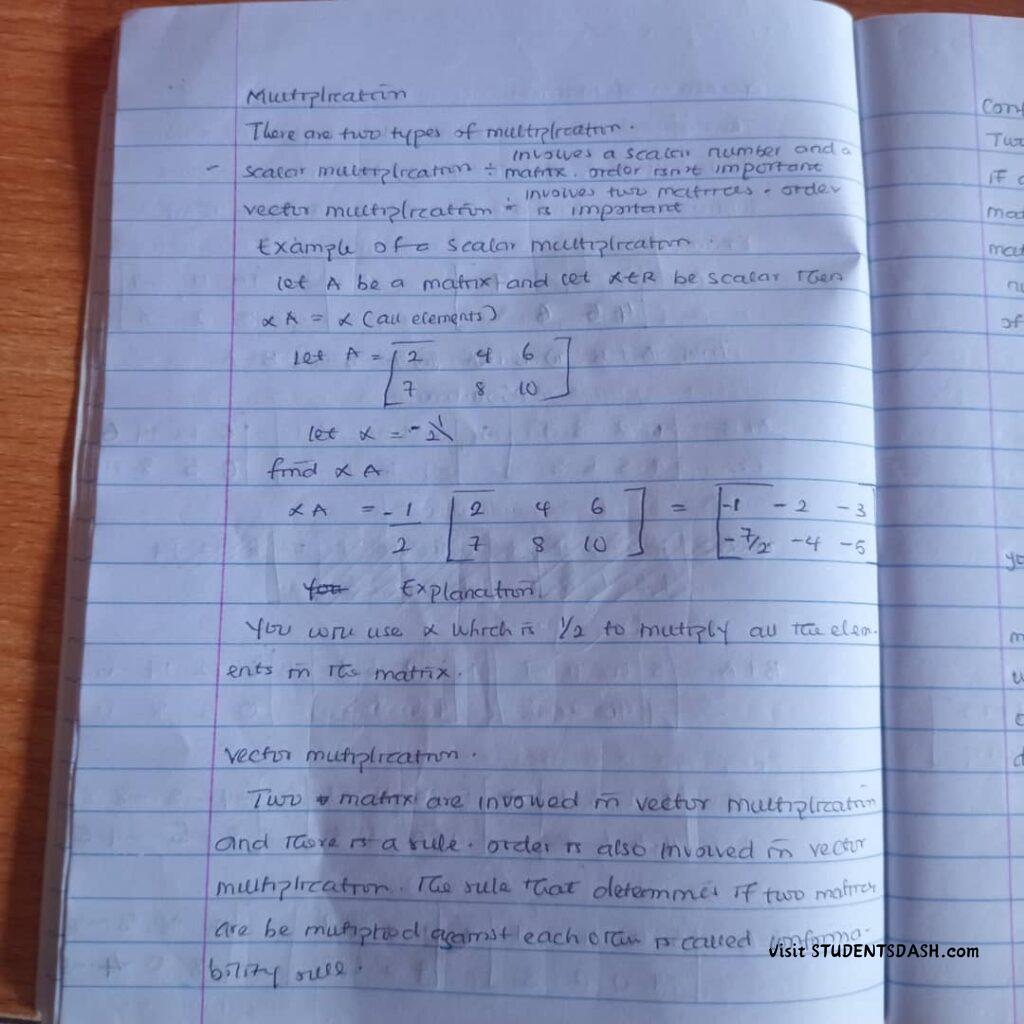 Multiplication
There are two types of multiplication.
- scalar multiplication ÷ involves a scalar number and a
matrix. order isn't important
vector multiplication ÷ involves two matrices. order
is important
Example of a scalar multiplication.
let A be a matrix and let α∈R be scalar then
α A = α (all elements)
let A = [2 4 6
7 8 10]
let α = -1/2
find α A
α A = -1/2 [2 4 6 = [-1 -2 -3
7 8 10] -7/2 -4 -5
Explanation.
You will use α which is 1/2 to mutiply all the elem-
ents in the matrix.
vector mutiplication.
Two matrix are involved in vector multiplication
and there is a rule. order is also involved in vector
multiplication. The rule that determines if two matrices
are be multiplied against each other is called conforma-
bility rule.
Visit STUDENTSDASH.com
Con
Two
if
of